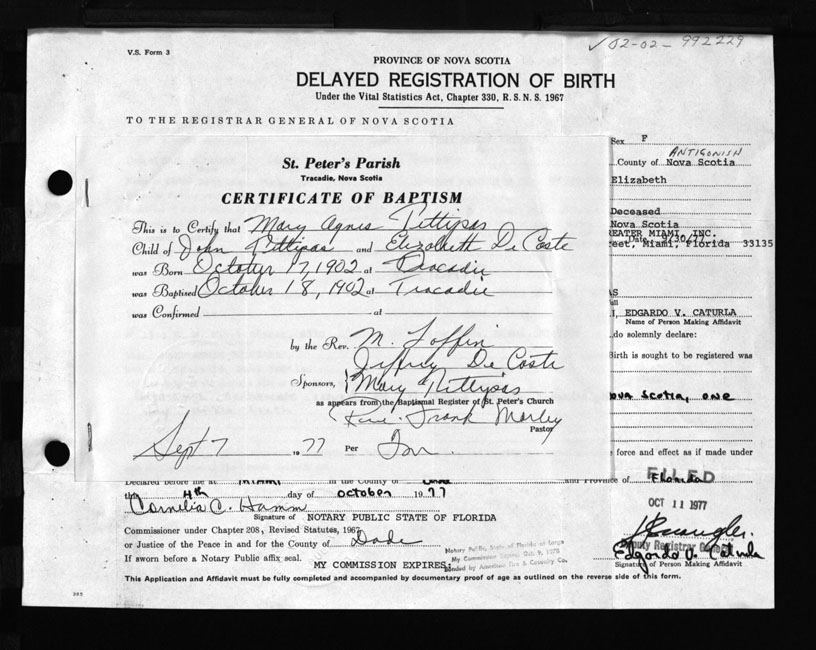 V.S. Form 3
✓ 02-02- 992229
PROVINCE OF NOVA SCOTIA
DELAYED REGISTRATION OF BIRTH
Under the Vital Statistics Act, Chapter 330, R. S. N. S. 1967
TO THE REGISTRAR GENERAL OF NOVA SCOTIA
Sex F
ANTIGONISH
County of Nova Scotia
Elizabeth
Deceased
Nova Scotia
REATER MIAMI, INC.
Date 9/30/77
reet, Miami, Florida 33135
AS
I, EDGARDO V. CATURLA
Name of Person Making Affidavit
do solemnly declare:
Birth is sought to be registered was
ova Scotia, one
force and effect as if made under
St. Peter's Parish
Tracadie, Nova Scotia
CERTIFICATE OF BAPTISM
This is to Certify that Mary Agnes Pettipas
Child of John Pettipas and Elizabeth De Coste
was Born October 17, 1902 at Tracadie
was Baptised October 18, 1902 at Tracadie
was Confirmed at
by the Rev. M. Laffin
Jeffrey De Coste
Sponsors, Mary Pettipas
as appears from the Baptismal Register of St. Peter's Church
Rev. Frank Morley
Pastor
Sept 7 1977 Per
Declared before me at MIAMI in the County of Dade and Province of Florida
this 4th day of October 1977
FILED
OCT 11 1977
Cornelia C. Hamm
Signature of NOTARY PUBLIC STATE OF FLORIDA
Commissioner under Chapter 208, Revised Statutes, 1967
or Justice of the Peace in and for the County of Dade
If sworn before a Notary Public affix seal.
MY COMMISSION EXPIRES:
Notary Public, State of Florida at Large
My Commission Expires Oct. 9, 1978
Bonded by American Fire & Casualty Co.
Deputy Registrar
Edgardo V. Caturla
Signature of Person Making Affidavit
This Application and Affidavit must be fully completed and accompanied by documentary proof of age as outlined on the reverse side of this form.